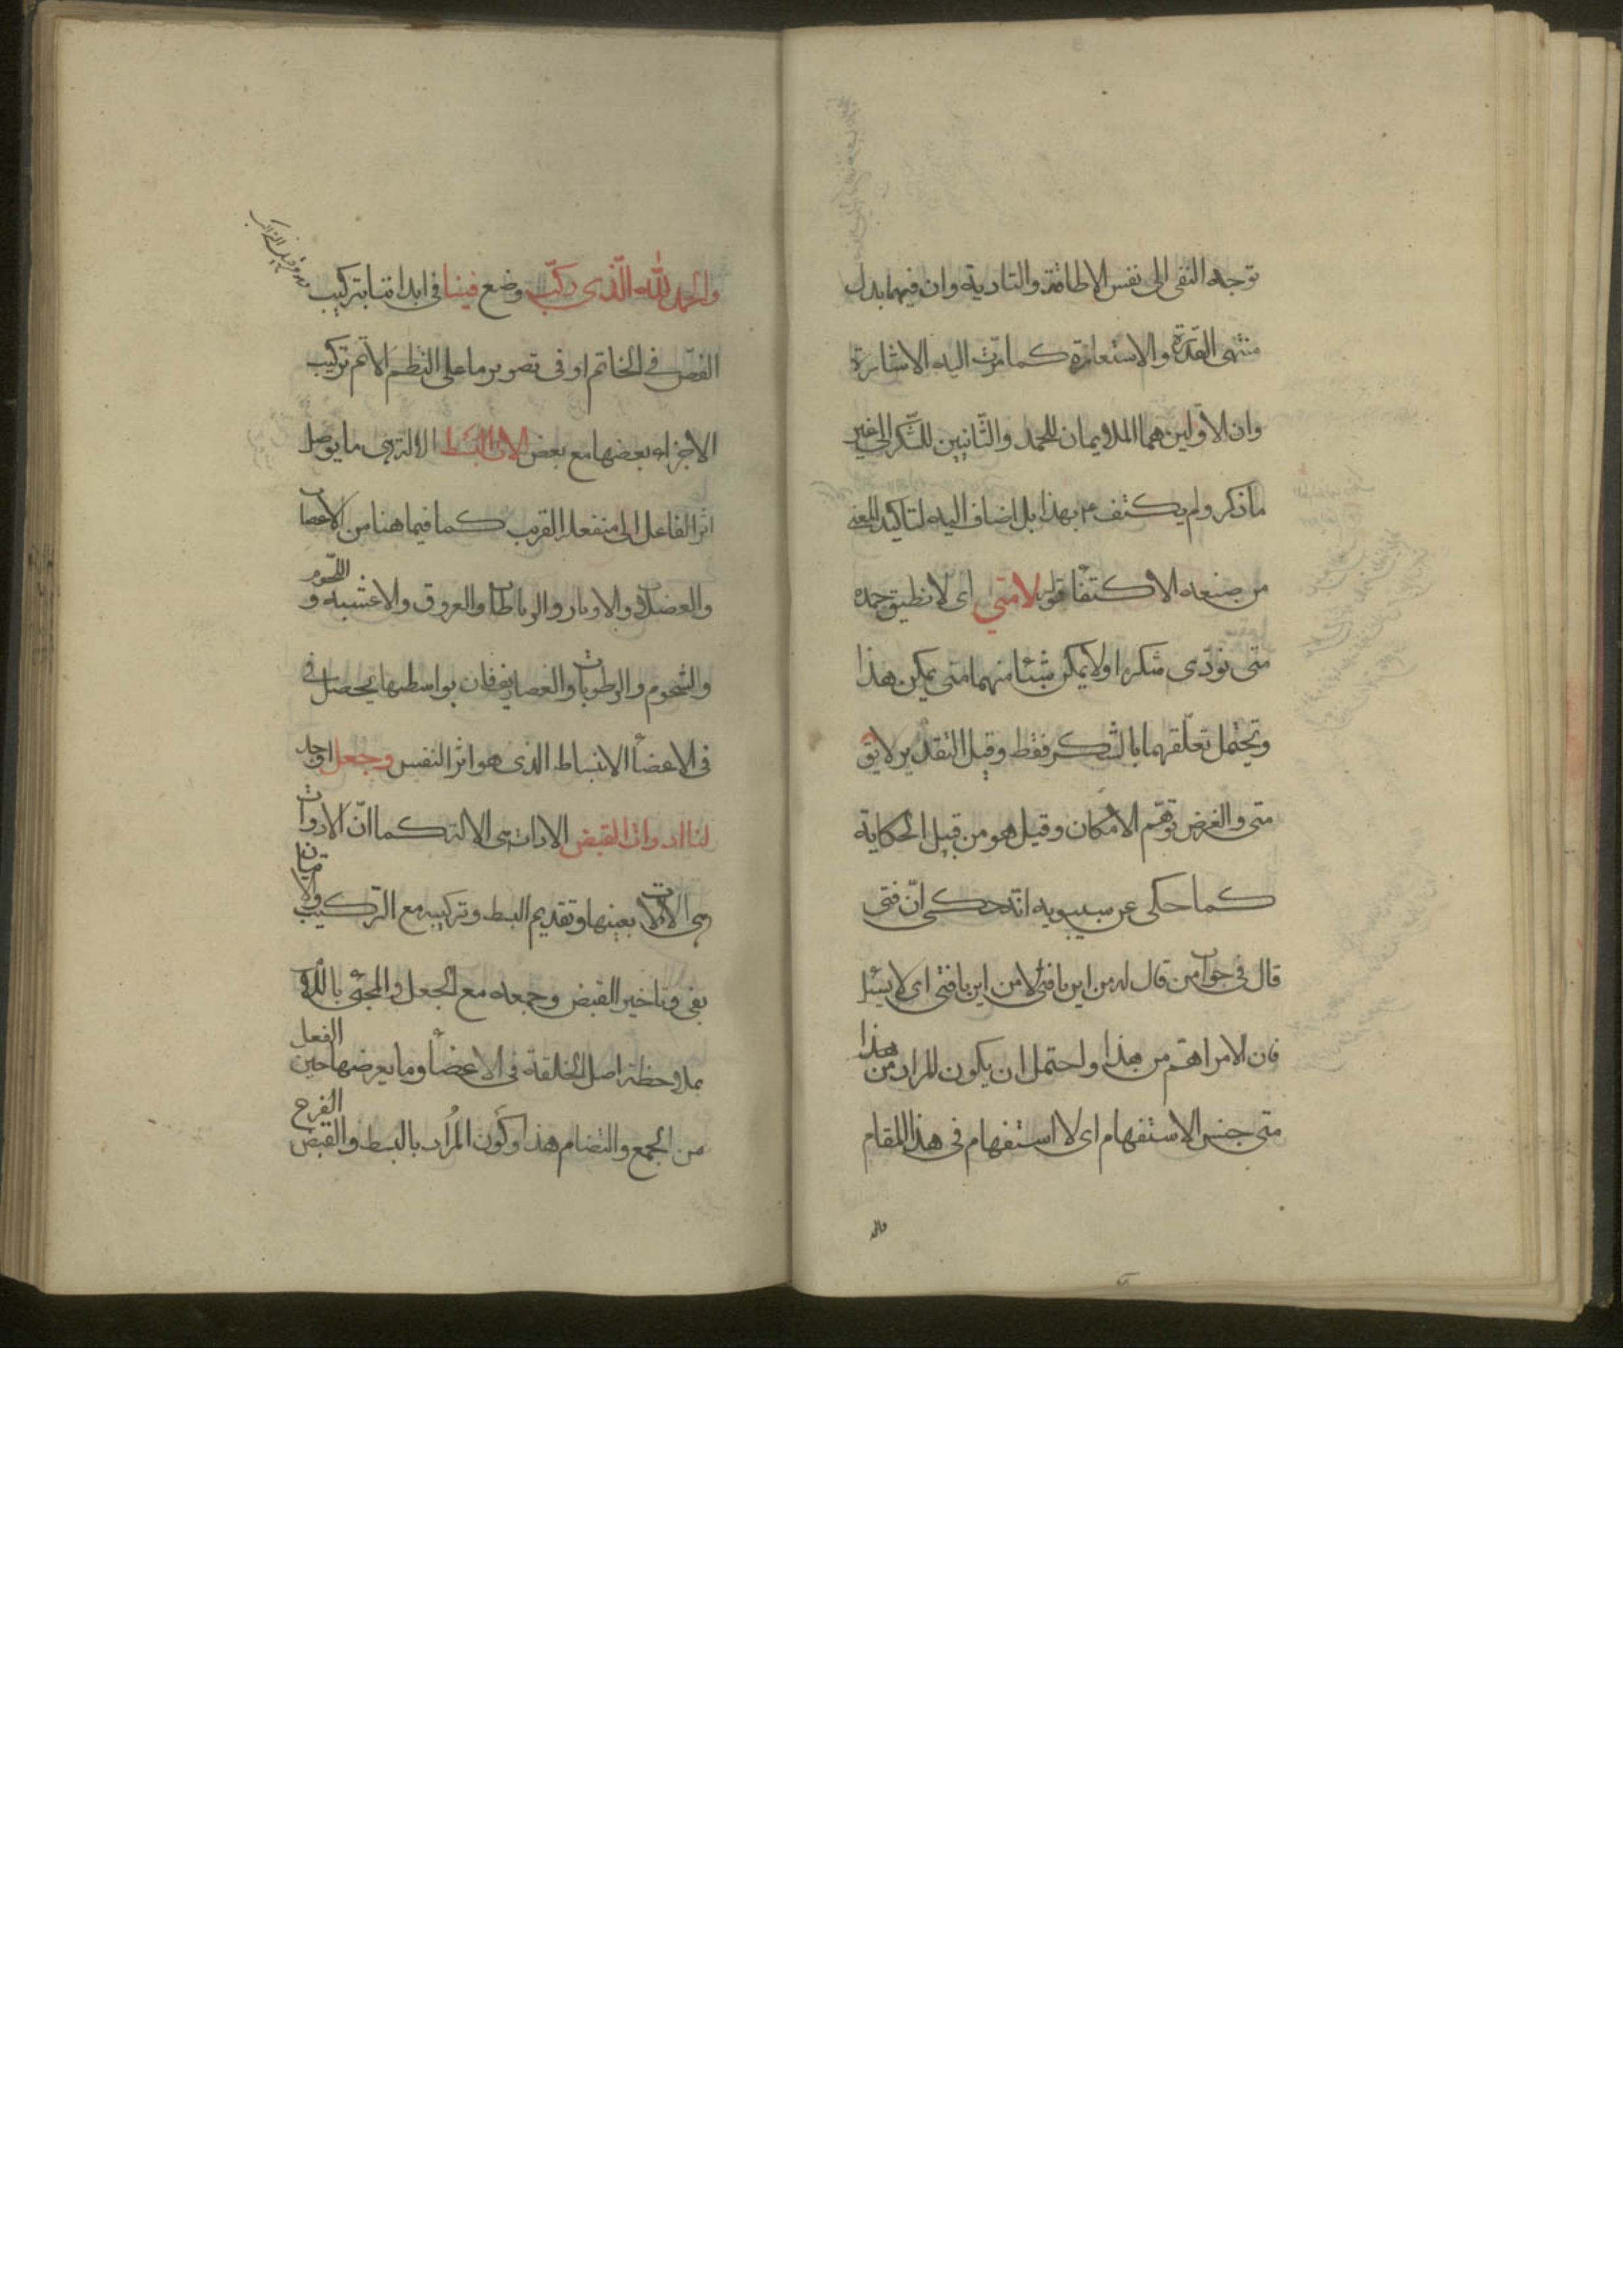 توجه النفى الى نفس الاطاقة والتادية وان فيهما بدل
منتهى القدرة والاستعانة كما مرّت اليه الاشارة
وان الاوّلين هما الملايمان للحمد والثّانيين للشّكر الى غير
ما ذكر ولم يكتف ع بهذا بل اضاف اليه لتاكيد المعنى
من صنعه الاكتفا قوله لا متى اى لا نطيق حمده
متى نؤدّى شكرا ولا يمكن شيئا منهما متى يمكن هذا
وتحتمل تعلّقهما بالشكر فقط وقيل التقدير لا يق
متى والغرض توهّم الامكان وقيل هو من قبيل الحكاية
كما حكى عن سيبويه انّه حكى انّ فتى
قال فى جواب من قال له من اين يا فتى لا من اين يا فتى اى لا يسئل
فان الامر اهمّ من هذا واحتمل ان يكون المراد من هذا
متى جنس الاستفهام اى لا استفهام فى هذا المقام
والحمد لله الّذى ركّب وضع فينا فى ابداننا بتركيب
الفصّ فى الخاتم او فى تصوير ما على النّظم الاتم تركيب
الاجزاء بعضها مع بعض الات البسط الالة هى ما يوصل
اثر الفاعل الى منفعله القريب كما فيما هنا من الاعصاب
والعضلات والاوتار والرباطات والعروق والاغشيه و اللّحوم
والشحوم والرطوبات والغضاريف فان بواسطتها يحصل فى
فى الاعضآء الانبساط الذى هو اثر النفس وجعل اوجد
لنا ادوات القبض الادات هى الالة كما انّ الادوات
هى الالات بعينها وتقديم البسط وتركيبه مع التّركيب والاتيان
بفى وتاخير القبض وجمعه مع الجعل والمجئ باللام
بملاحظة اصل الخلقة فى الاعضآء وما يعرضها حين الفعل
من الجمع والتضام هذا وكون المراد بالبسط والقبض الفرح